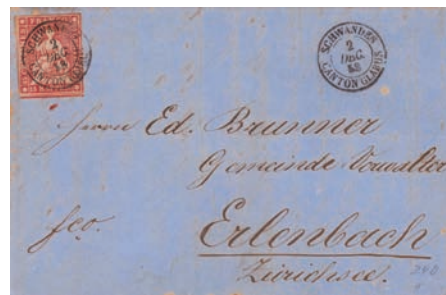 SCHWANDEN
2
DEC.
58
CANTON GLARUS
SCHWANDEN
2
DEC.
58
CANTON GLARUS
Herrn Ed. Brunner
Gemeinde
fco. Erlenbach
Zürichsee.
240